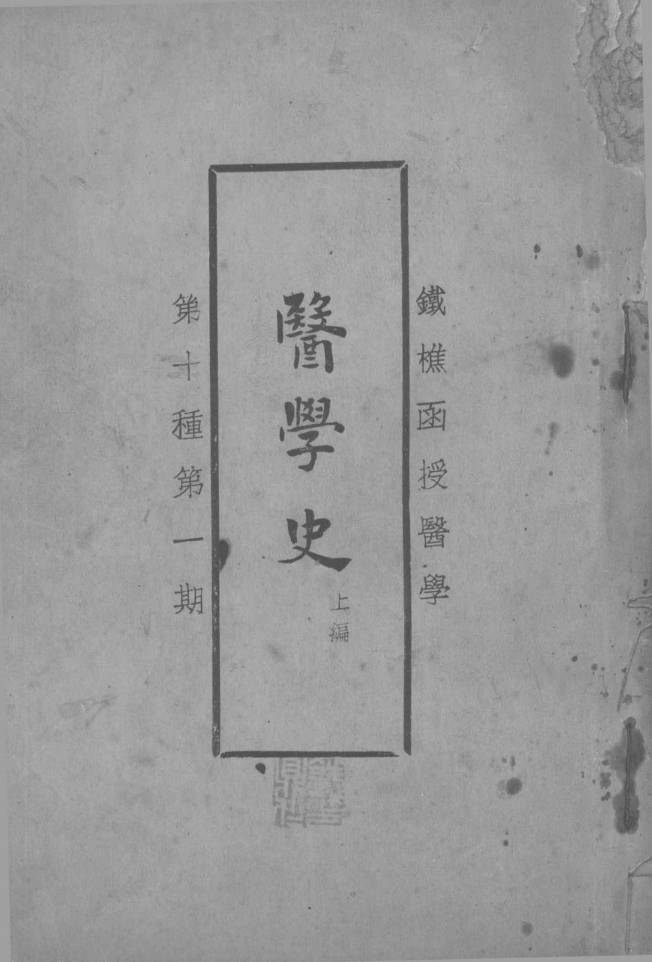 鐵樵函授醫學
醫學史
上編
第十種第一期